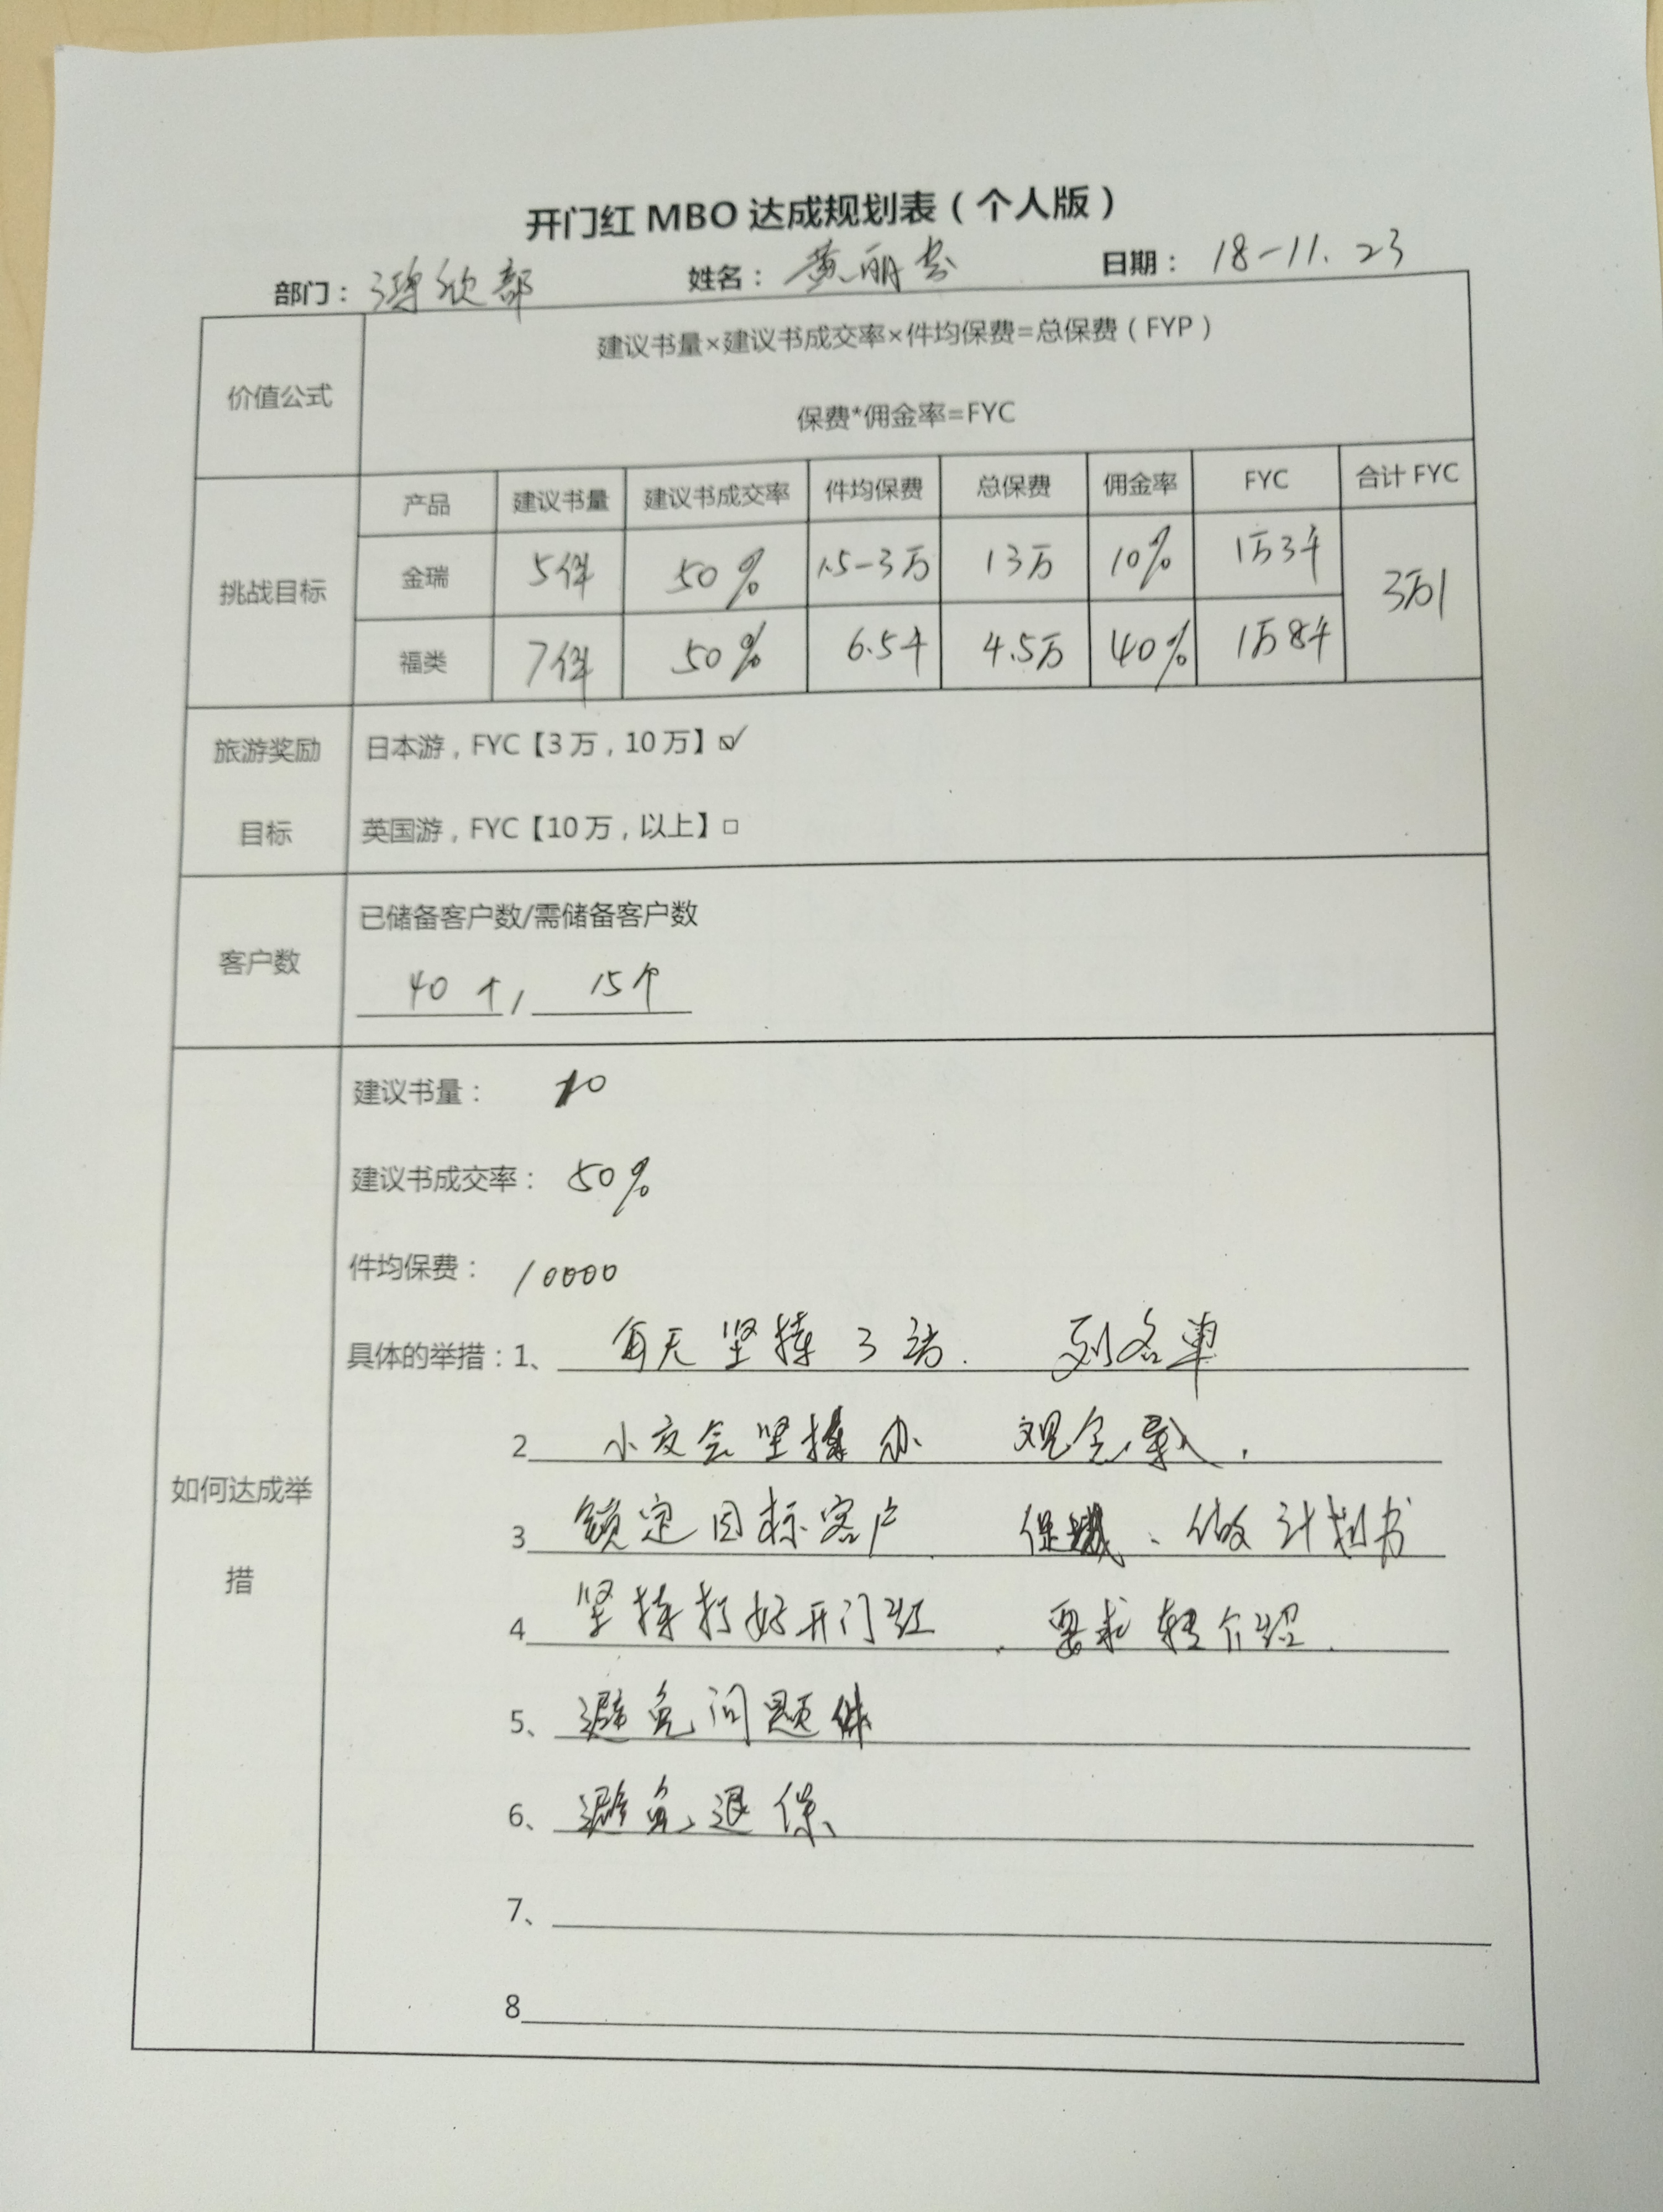 开门红 MBO 达成规划表（个人版）
部门： 欣部 姓名： 黄丽 日期： 18-11.23
价值公式
建议书量×建议书成交率×件均保费=总保费（FYP）
保费*佣金率=FYC
挑战目标
产品 建议书量 建议书成交率 件均保费 总保费 佣金率 FYC 合计 FYC
金瑞 5件 50% 1.5-3万 13万 10% 1万3千 3万1
福类 7件 50% 6.5千 4.5万 40% 1万8千
旅游奖励
目标
日本游，FYC【3 万，10 万】☑
英国游，FYC【10 万，以上】□
客户数
已储备客户数/需储备客户数
40个/15个
如何达成举
措
建议书量： 20
建议书成交率： 50%
件均保费： 10000
具体的举措：1、每天坚持3访. 列名单
2 小交会坚持办 观念导入.
3 锁定目标客户 、做计划书
4 坚持打好开门红 . 要求转介绍.
5、避免问题件
6、避免退保、
7、
8